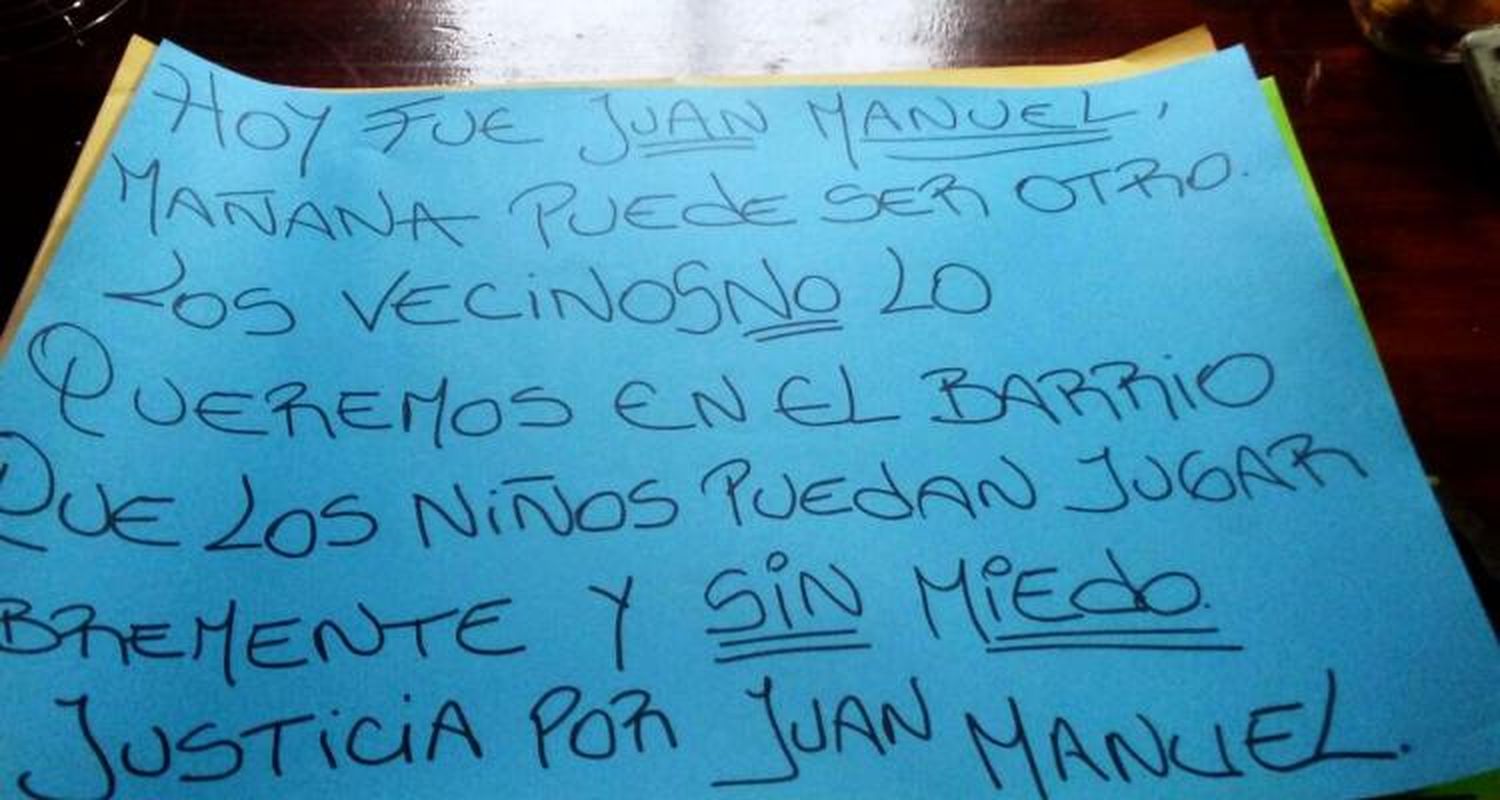 HOY FUE JUAN MANUEL,
MAÑANA PUEDE SER OTRO.
LOS VECINOS NO LO
QUEREMOS EN EL BARRIO
QUE LOS NIÑOS PUEDAN JUGAR
BREMENTE Y SIN MIEDO.
JUSTICIA POR JUAN MANUEL.